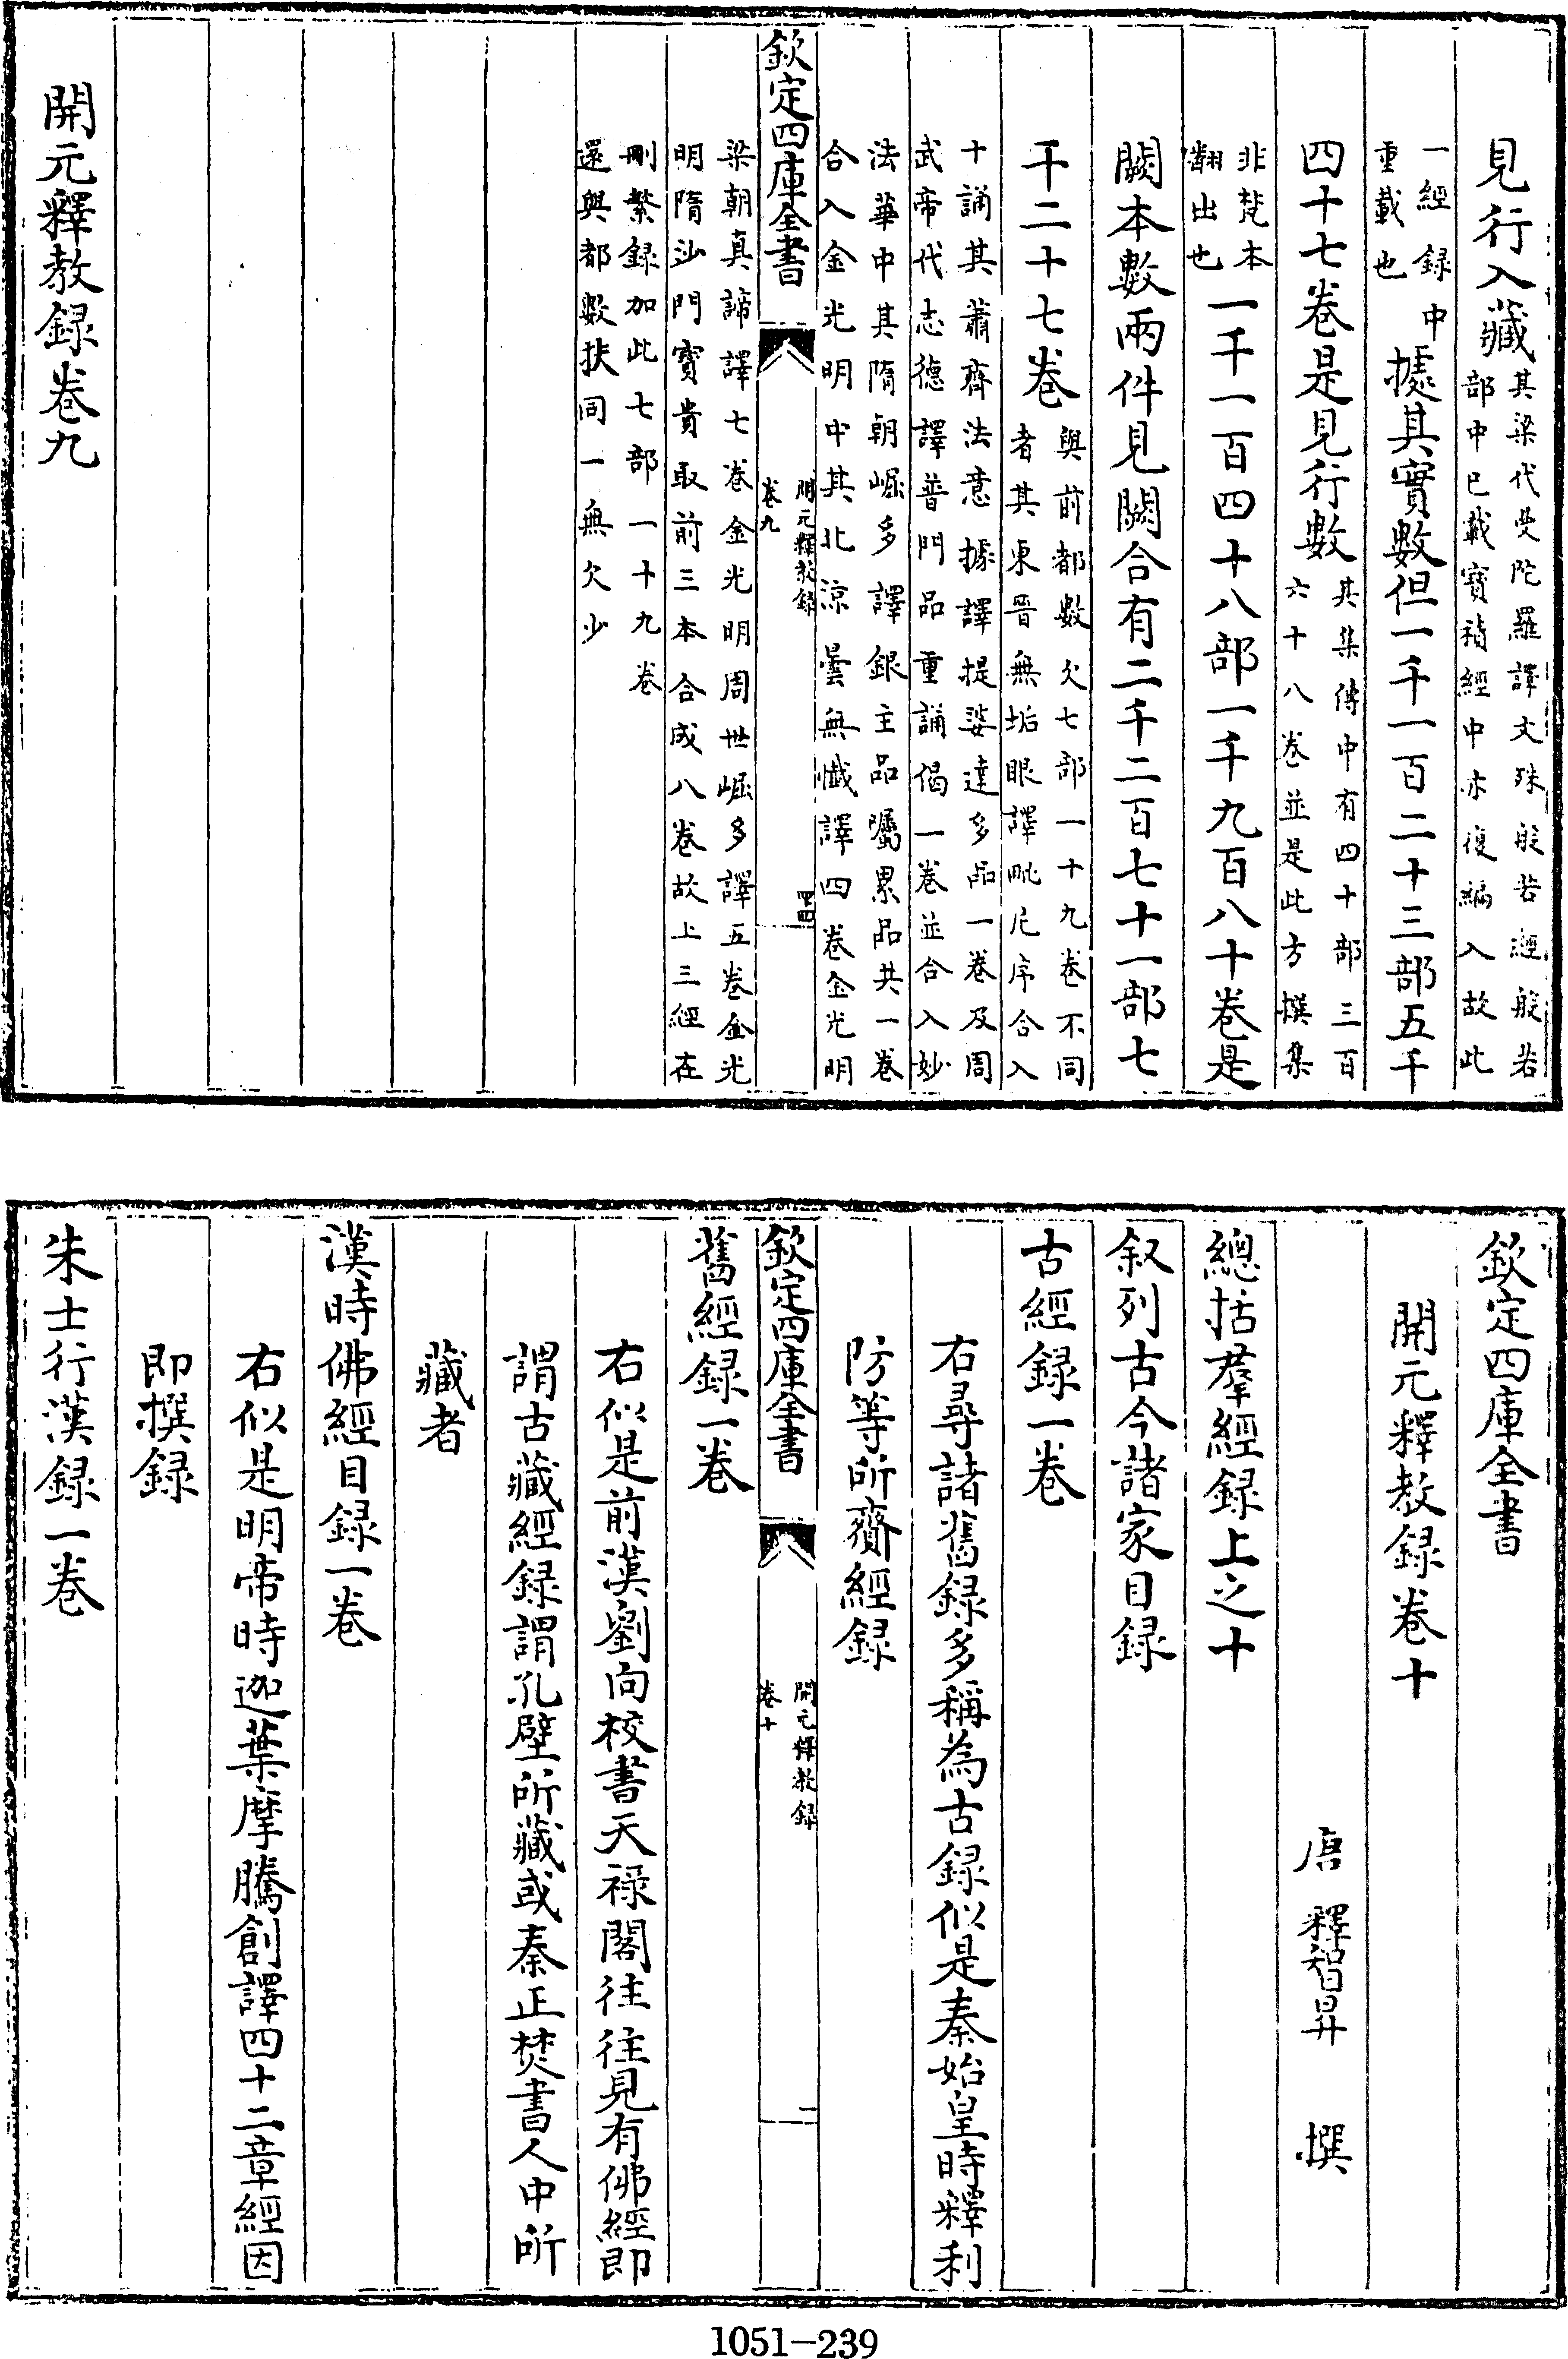 見行入藏其梁代曼陀羅譯文殊般若經般若
部中已載寶積經中亦復編入故此
一經録中
重載也據其實數但一千一百二十三部五千
四十七卷是見行數其集傳中有四十部三百
六十八卷並是此方撰集
非梵本
翻出也一千一百四十八部一千九百八十卷是
闕本數兩件見闕合有二千二百七十一部七
千二十七卷與前都數欠七部一十九卷不同
者其東晉無垢眼譯毗尼序合入
十誦其蕭齊法意據譯提婆達多品一卷及周
武帝代志德譯普門品重誦偈一卷並合入妙
法華中其隋朝崛多譯銀主品囑累品共一卷
合入金光明中其北涼曇無懺譯四卷金光明
欽定四庫全書
開元釋教録
卷九
四十四
梁朝真諦譯七卷金光明周世崛多譯五卷金光
明隋沙門寶貴取前三本合成八卷故上三經在
刪繁録加此七部一十九卷
還與都數扶同一無欠少
開元釋教録卷九
欽定四庫全書
開元釋教録卷十
唐 釋智昇 撰
總括羣經録上之十
叙列古今諸家目録
古經録一卷
右尋諸舊録多稱為古録似是秦始皇時釋利
防等所齎經録
欽定四庫全書
開元釋教録
卷十
一
舊經録一卷
右似是前漢劉向校書天禄閣往往見有佛經即
謂古藏經録謂孔壁所藏或秦正焚書人中所
藏者
漢時佛經目録一卷
右似是明帝時迦葉摩騰創譯四十二章經因
即撰録
朱士行漢録一卷
1051-239